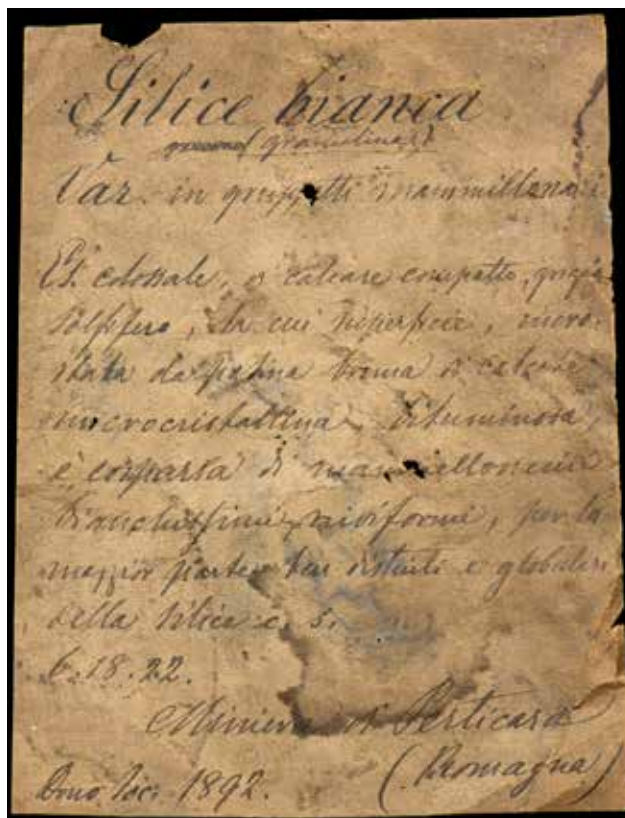 Silice bianca
(granulina)
Var. in gruppetti mammillonari
Es. colossale, di calcare compatto, grigio
solfifero, la cui superficie, incro-
stata da patina bruna di calcare
microcristallina bituminosa,
è cosparsa di mammelloncini
bianchissimi, pisiformi, per la
maggior parte ben distinti e globulari
della silice c. s.
6.18.22.
Miniera di Perticara
(Romagna)
Dono 1892.